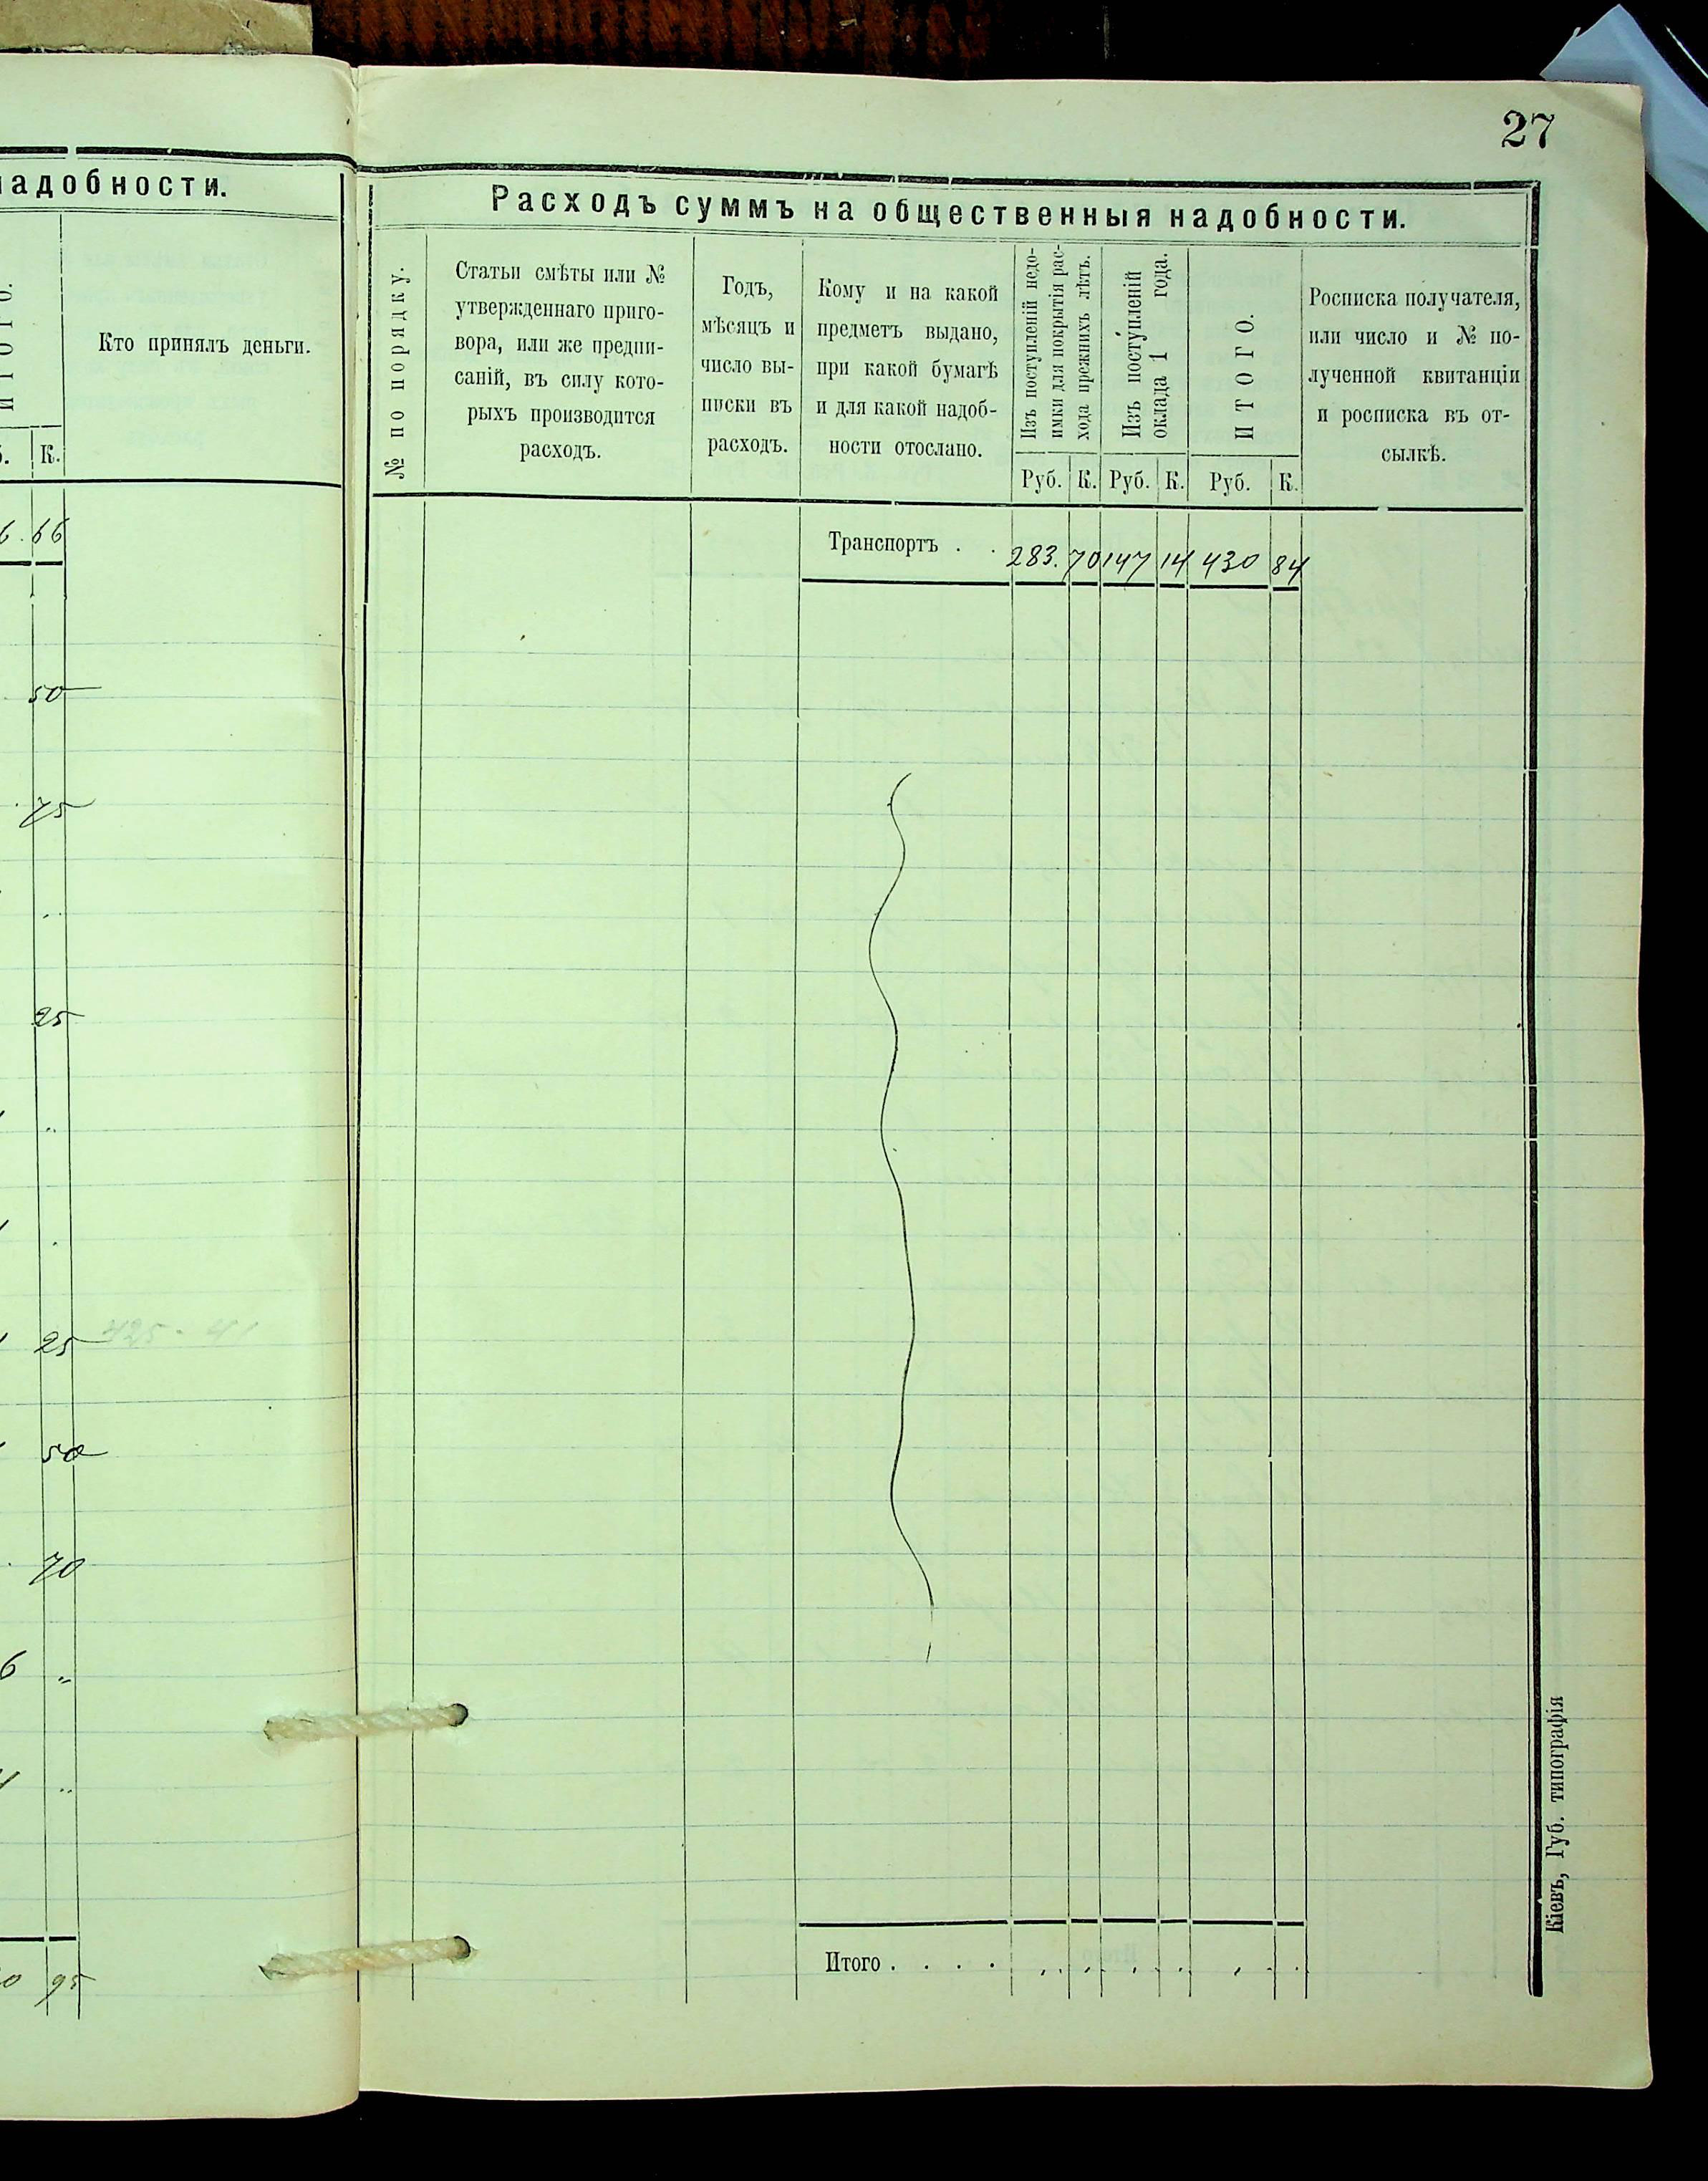 27
надобности.
ИТОГО.
Кто принялъ деньги.
К.
66
50
75
25
25 425 - 41
50
70
6 "
95
Расходъ суммъ на общественныя надобности.
№ по порядку.
Статьи смѣты или №
утвержденнаго приго-
вора, или же предпи-
саній, въ силу кото-
рыхъ производится
расходъ.
Годъ,
мѣсяцъ и
число вы-
писки въ
расходъ.
Кому и на какой
предметъ выдано,
при какой бумагѣ
и для какой надоб-
ности отослано.
Изъ поступленій недо-
имки для покрытія рас-
хода прежнихъ лѣтъ.
Изъ поступленій
оклада 1 года.
ИТОГО.
Росписка получателя,
или число и № по-
лученной квитанціи
и росписка въ от-
сылкѣ.
Руб. К. Руб. К. Руб. К.
Транспортъ . . 283. 70 147 14 430 84
Итого . . . .
Кіевъ, Губ. типографія